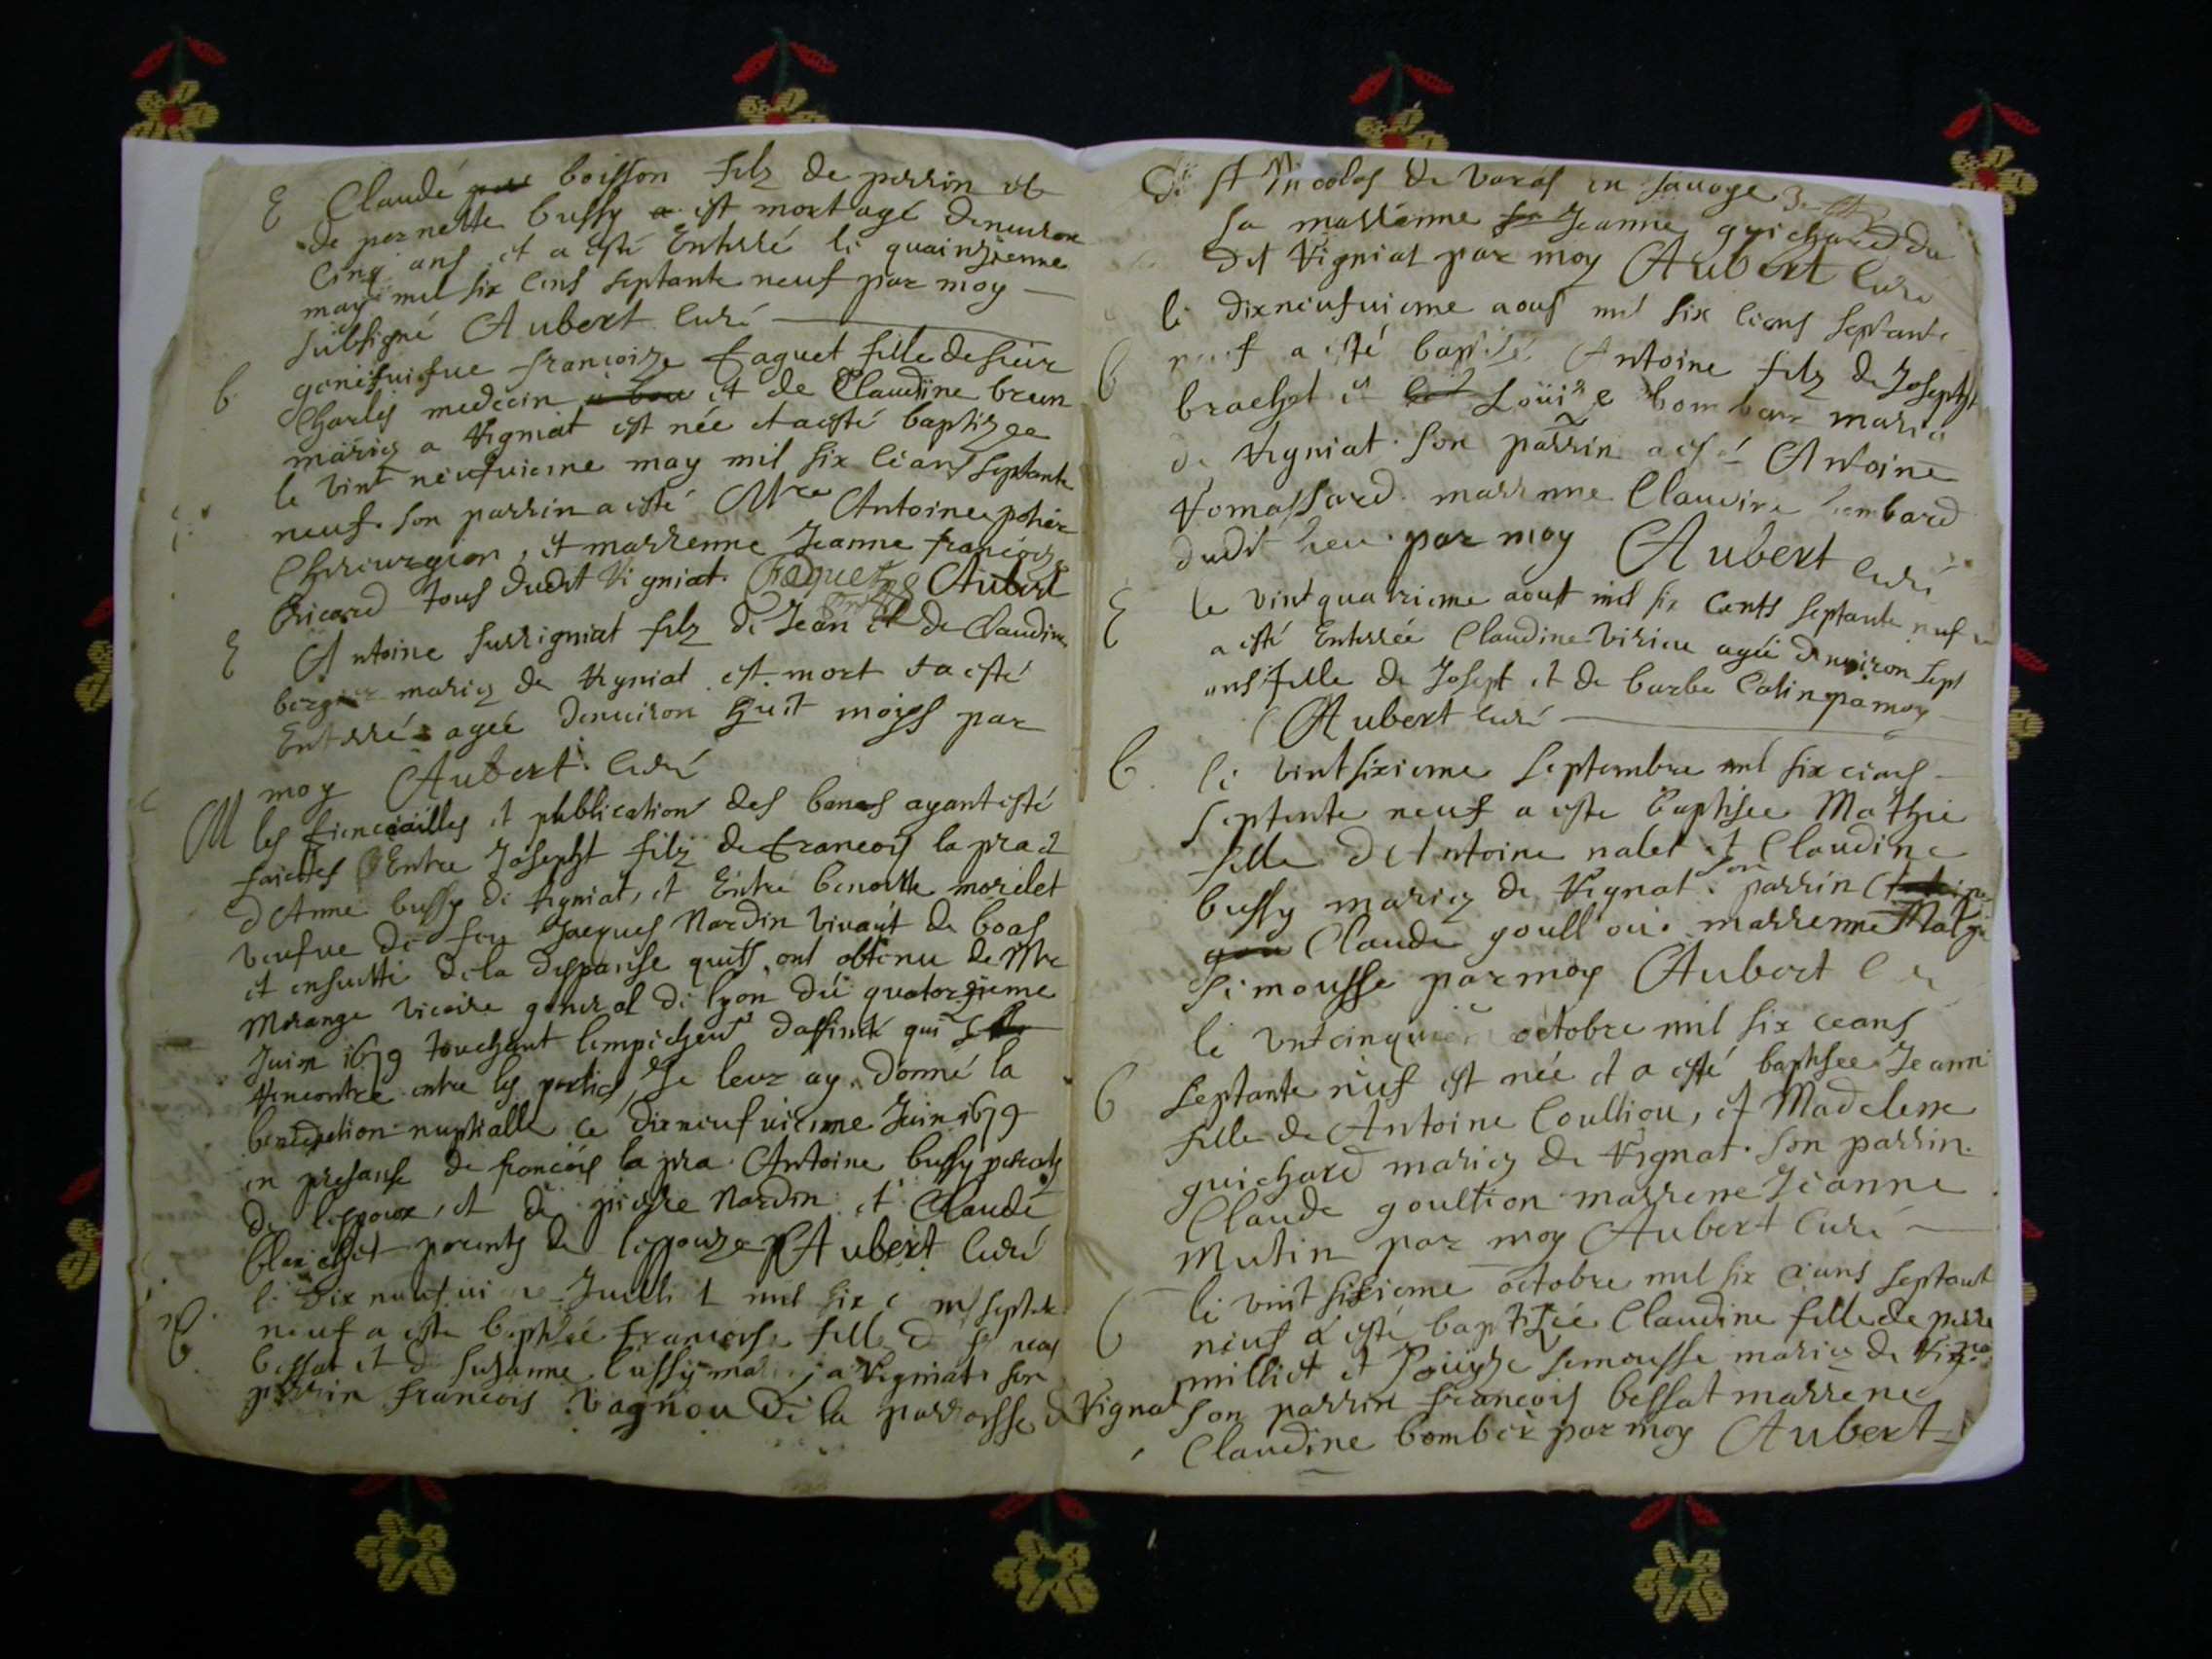 E Claude boisson filz de perrin et
de pernette bussy est mort agé denuiron
cinq ans et a esté Enterré le quainzienne
may mil six cens septante neuf par moy
subsigné Aubert curé
B geneuiefue françoize faquet fille de sieur
Charles medecin et de Claudine brun
mariez a Vigniat est née et a esté baptizee
le vint neufuieme may mil six ceans septante
neuf. son parrin a esté Mre Antoine
Chirurgien, et marrenne Jeanne françoize
Ricard tous dudit Vigniat. faquet Aubert
E Antoine surrigniat filz de Jean et de Claudine
bergier mariez de Vigniat est mort et a esté
Enterré agée denuiron huit moys par
moy Aubert curé
M les fiencailles et publication des banes ayant esté
faictes Entre Josepht filz de francois la pra et
dAnne bussy de Vigniat, et Entre benoitte morelet
veufue de feu Jacques Nardin viuant de boas
et ensuitte de la dispanse quils ont obtenu de Mre
Morange vicaire general de lyon du quatorzieme
Juin 1679 touchant lempichent daffinité qui se
rencontre entre les parties, Je leur ay donné la
benediction nuptialle ce dixneufuieme Juin 1679
en presanse de francois la pra Antoine bussy parents
de lespoux, et de pierre Nardin et Claude
blanchet parents de lespouze Aubert curé
le dix neufui Juillet mil six septante
B neuf a este baptisée francoise fille de
bessat et de Suzanne bussy mariez a Vigniat son
parrin francois vagnou de la parroisse de Vignat
de st Nicolas de varas en sauoye
sa marrenne Jeanne guichard du
dit Vigniat par moy Aubert curé
le dixneufuieme aous mil six ceans septante
B neuf a esté baptisé Antoine filz de Josepht
brachet et Louize bombar mariez
de Vigniat. son parrin a esté Antoine
Vomassard. marrenne Claudine bombard
dudit lieu par moy Aubert curé
E le vintquatrieme aoust mil six cents septante neuf
a esté Enterrée Claudine virieu agée denuiron sept
ans fille de Josept et de barbe Catin pa moy
Aubert curé
B. le vintsixieme septembre mil six ceans
septante neuf a este baptisee Mathie
fille dAntoine nalet et Claudine
bussy mariez de Vignat. son parrin
Claude goullioü. marrenne Mathie
Simousse par moy Aubert
le vntcinquiem octobre mil six ceans
B septante neuf est née et a esté baptisee Jeanne
fille de Antoine Coulliou, et Madelene
guichard mariez de Vignat. son parrin.
Claude goultion marrene Jeanne
Mutin par moy Aubert curé
le vint sixieme octobre mil six ceans septante
B neuf a esté baptizée Claudine fille de pierre
milliet et Louyze simousse mariez de
son parrin francois bessat marrene
Claudine bomber par moy Aubert